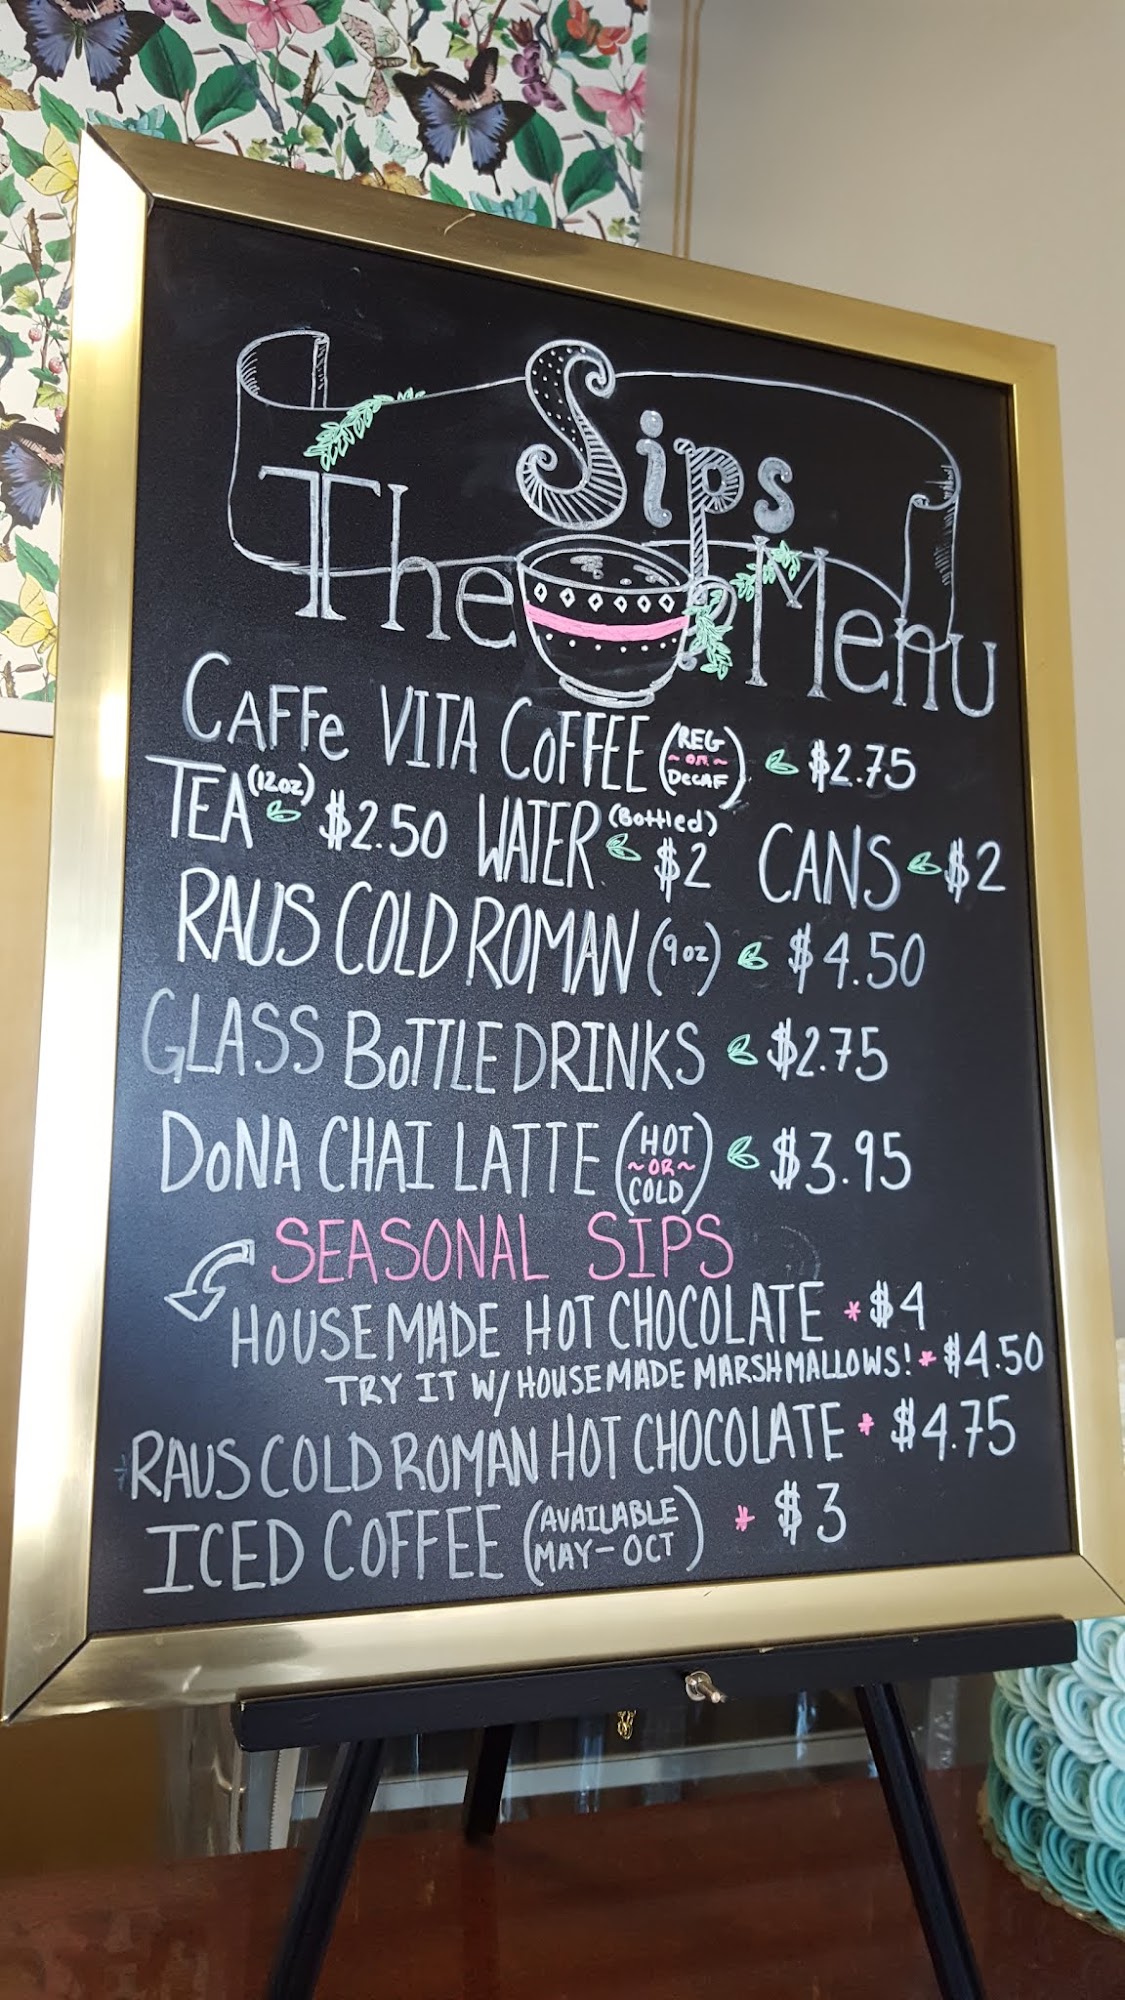 The Sips Menu
CAFFe VITA COFFEE (REG ~OR~ DECAF) $2.75
TEA (12oz) $2.50 WATER (Bottled) $2 CANS $2
RAUS COLD ROMAN (9oz) $4.50
GLASS BOTTLE DRINKS $2.75
DONA CHAI LATTE (HOT ~OR~ COLD) $3.95
SEASONAL SIPS
HOUSEMADE HOT CHOCOLATE * $4
TRY IT W/ HOUSEMADE MARSHMALLOWS! * $4.50
RAUS COLD ROMAN HOT CHOCOLATE * $4.75
ICED COFFEE (AVAILABLE MAY-OCT) * $3